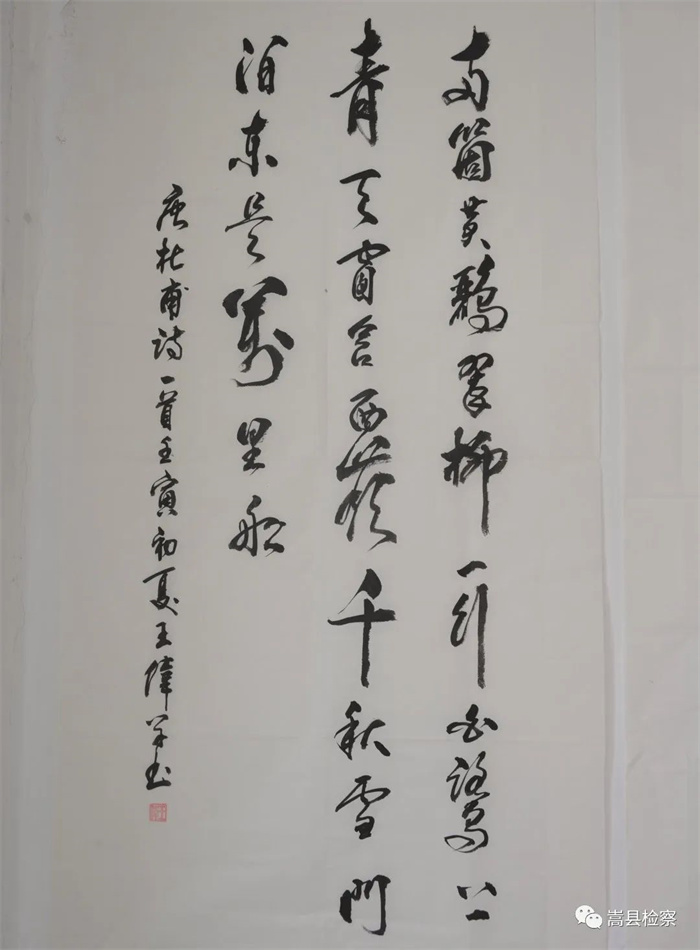 两箇黄鸝翠柳一行白鷺上
青天窗含西嶺千秋雪門
泊东吴萬里船
唐杜甫诗一首壬寅初夏王偉学书
嵩县检察